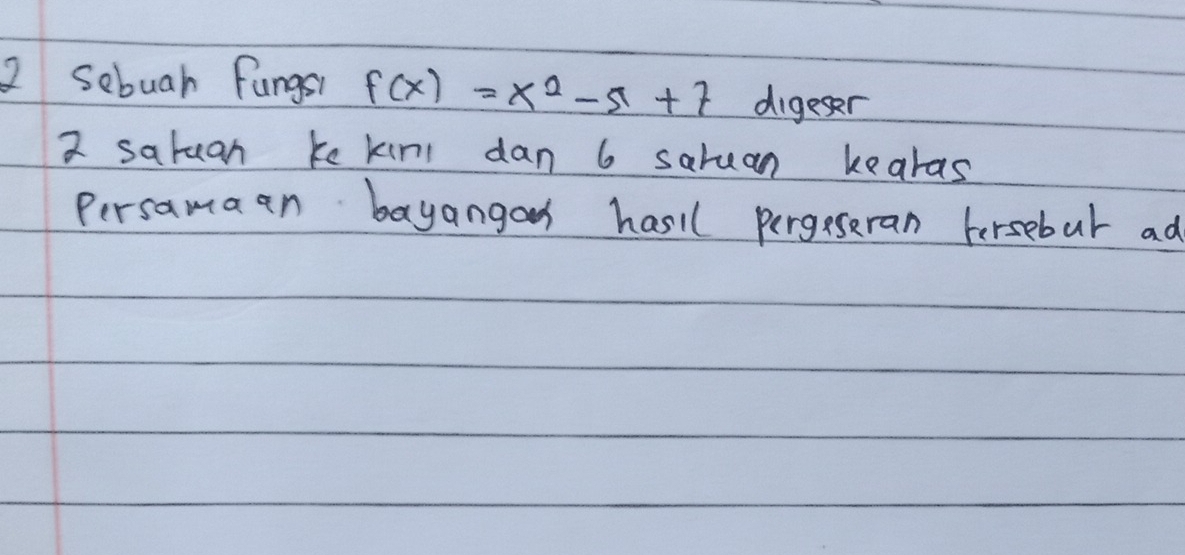 2 Sebuah fungsi f(x) = x² - 5 + 7 digeser
2 satuan ke kiri dan 6 satuan keatas
Persamaan bayangan hasil pergeseran tersebut ad